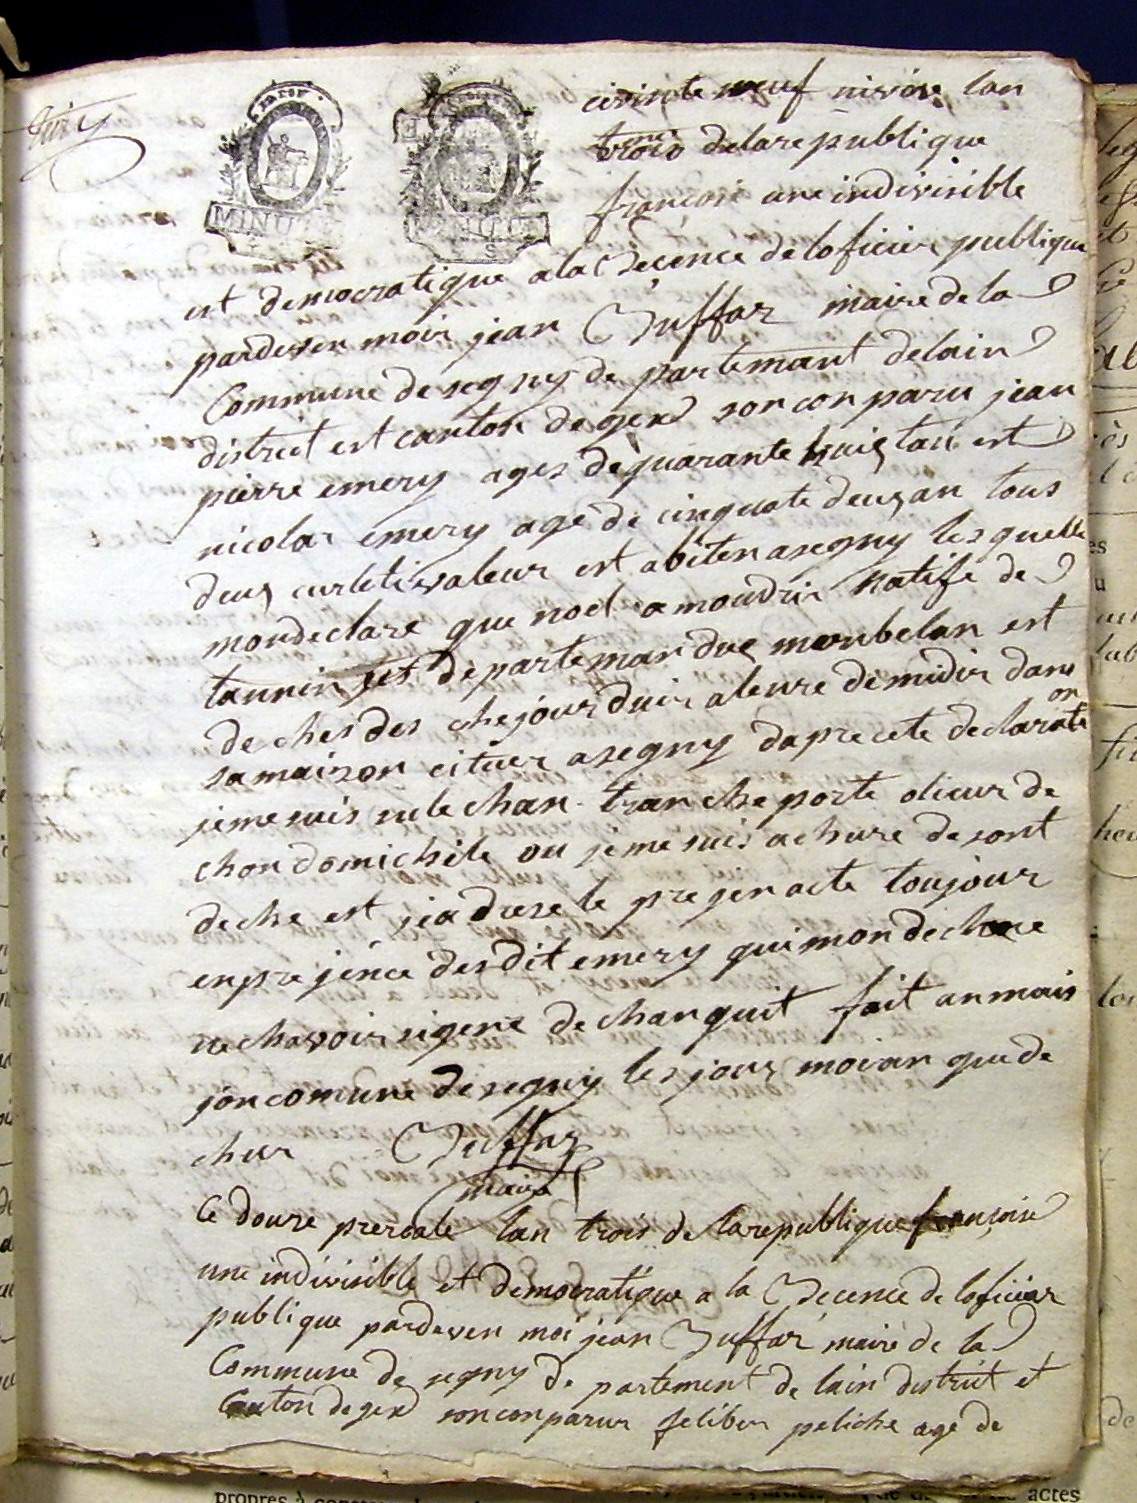 MINU
neuf nivose lan
trois delarepublique
francoise une indivisible
est democratique ala Decence de loficier publique
pardeven moir jean Duffar maire de la
Commune de segny de partemant delain
district est canton de gex son con paru jean
pierre emery ages de quarante huis tan est
nicolas emery age de cinquate deus an tous
deus curletivateur est abiten a segny les quelle
mon declare que noel amoudri natife de
departeman du monbelan est
de chesdes che jour duir aleure de midir dans
sa maison cituer a segny dapre cete declarate on
je me suis sule chan tranche porte olieur de
chon domichile ou je me suis achure de sont
deche est jia drese le pregen acte toujour
en prejence des dit emery qui mon dechare
ne chavoir signe de chan quit fait an mais
jon comune de segny les jour moi an que de
chur Duffar
maire
Ce douze prereale lan trois de la republique francoise
une indivisible et democratique a la Decence de loficier
publique pardeven moi jean Duffar maire de la
Commune de segny de partement de lain district et
Canton de gex son con parur feliber peliche age de
propres à actes